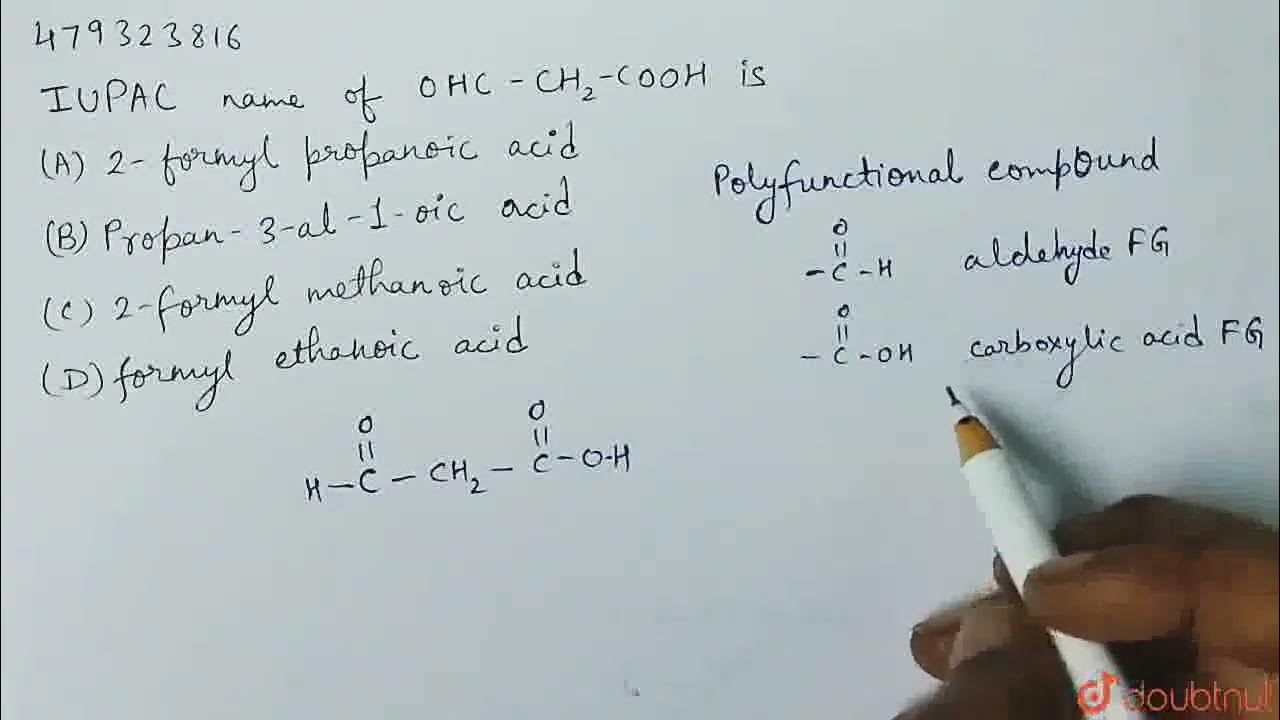 479323816
IUPAC name of OHC-CH₂-COOH is
(A) 2-formyl propanoic acid
(B) Propan-3-al-1-oic acid
(C) 2-formyl methanoic acid
(D) formyl ethanoic acid
O O
|| ||
H-C-CH₂-C-O-H
Polyfunctional compound
O
||
-C-H aldehyde FG
O
||
-C-OH carboxylic acid FG
doubtnut